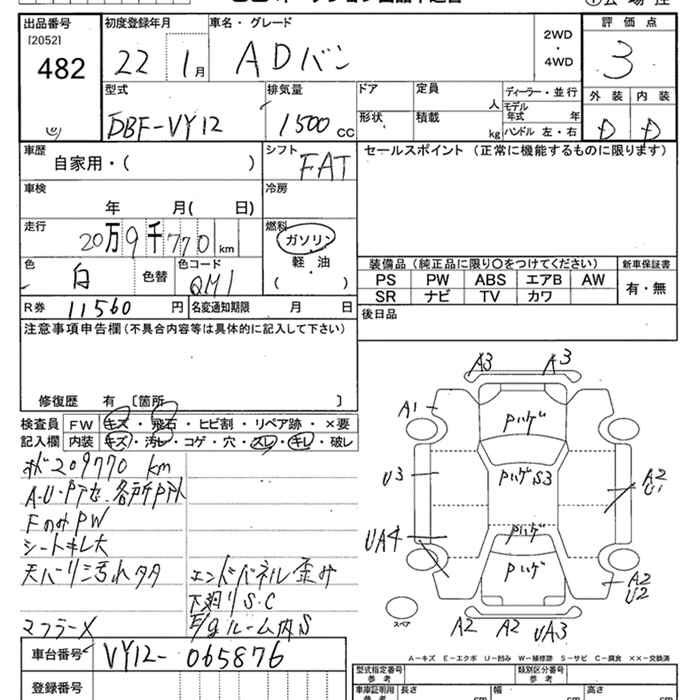 出品番号 初度登録年月 車名・グレード 2WD・4WD 評価点
[2052]
482 22 1月 ADバン 3
型式 排気量 ドア 定員 人 ディーラー・並行 外装 内装
DBF-VY12 1500cc 形状 積載 kg モデル年式 年 D D
ハンドル 左・右
車歴 シフト セールスポイント (正常に機能するものに限ります)
自家用・( ) FAT
車検 冷房
年 月( 日)
走行 燃料
20万9千770km ガソリン
軽・油
( )
色 色替 色コード 装備品(純正品に限り○をつけてください) 新車保証書
白 QM1 PS PW ABS エアB AW 有・無
SR ナビ TV カワ
R券 11560円 名変通知期限 月 日 後日品
注意事項申告欄(不具合内容等は具体的に記入して下さい)
修復歴 有 [箇所 ]
検査員 FW キズ・飛石・ヒビ割・リペア跡・×要
記入欄 内装 キズ・汚レ・コゲ・穴・スレ・キレ・破レ
209770 km
FのみPW
シートキレ大
エンドパネル歪み
下廻りS・C
マフラーX ルーム内S
車台番号 VY12-065876
登録番号
A3 A3
A1 Pハゲ
U3 PハゲS3 A2
U1
UA4 Pハゲ
Pハゲ A2
U2
スペア A2 A2 UA3
A-キズ E-エクボ U-凹み W-補修跡 S-サビ C-腐食 ××-交換済
型式指定番号 参考 類別区分番号 参考
車庫証明用 参考 長さ cm 幅 cm 高さ cm